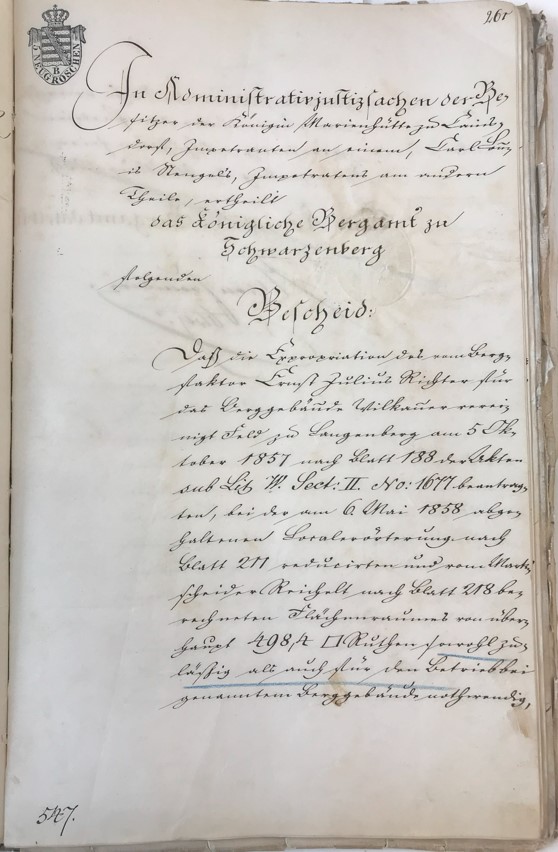 261
5 NEUGROSCHEN
B
In Administrativjustizsachen der Be-
sitzer der Königin Marienhütte zu Cains-
dorf, Impetranten an einem, Carl Lou-
is Stengels, Impetratens am andern
Theile, ertheilt
das Königliche Bergamt zu
Schwarzenberg
folgenden
Bescheid:
Daß die Expropriation des vom Berg-
faktor Ernst Julius Richter für
das Berggebäude Vilkauer verei-
nigt Feld zu Langenberg am 5 Ok-
tober 1857 nach Blatt 188 der Akten
sub Lit. W. Sect: II. No: 1677 beantrag-
ten, bei der am 6. Mai 1858 abge-
haltenen Localerörterung nach
Blatt 211 reducirten und vom Mark-
scheider Reichelt nach Blatt 218 be-
rechneten Flächenraumes von über-
haupt 498,4 □Ruthen sowohl zu-
lässig als auch für den Betrieb bei
genanntem Berggebäude nothwendig,
547.